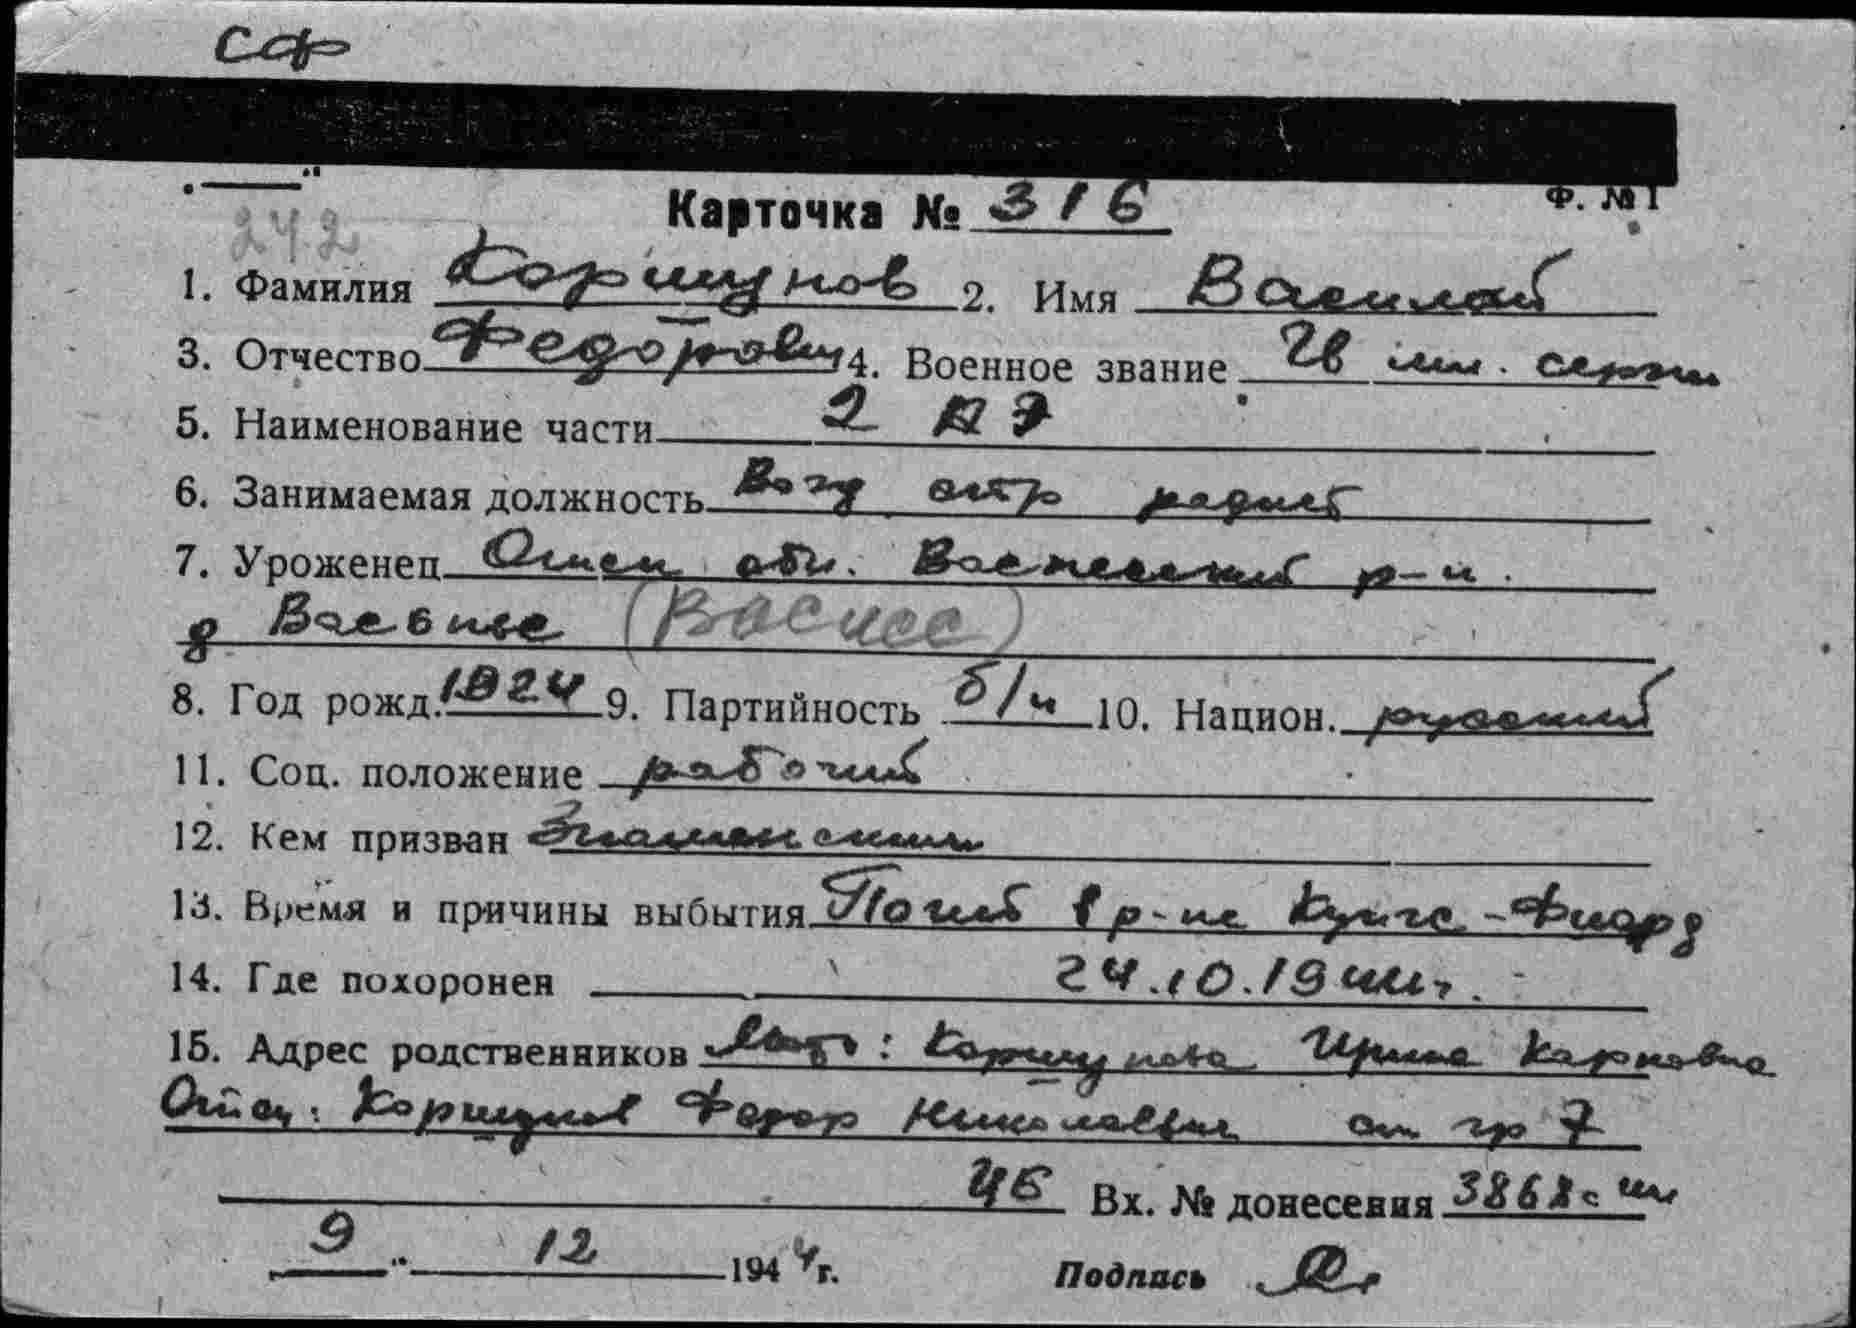 СФ
Ф. №1
Карточка № 316
242
1. Фамилия Коршунов 2. Имя Василий
3. Отчество Федорович 4. Военное звание Гв мл. серж
5. Наименование части 2 АЭ
6. Занимаемая должность Возд стр радист
7. Уроженец Омск обл. р-н.
д (Васисс)
8. Год рожд. 1924 9. Партийность б/п 10. Национ. русский
11. Соц. положение рабочий
12. Кем призван Знаменским
13. Время и причины выбытия Погиб в р-не Кунгс-Фиорд
14. Где похоронен 24.10.1944г.
15. Адрес родственников Мать: Коршунова Ирина Карповна
Отец: Коршунов Федор Николаевич см гр 7
Вх. № донесения 3868с
9 " 12 1944г. Подпись